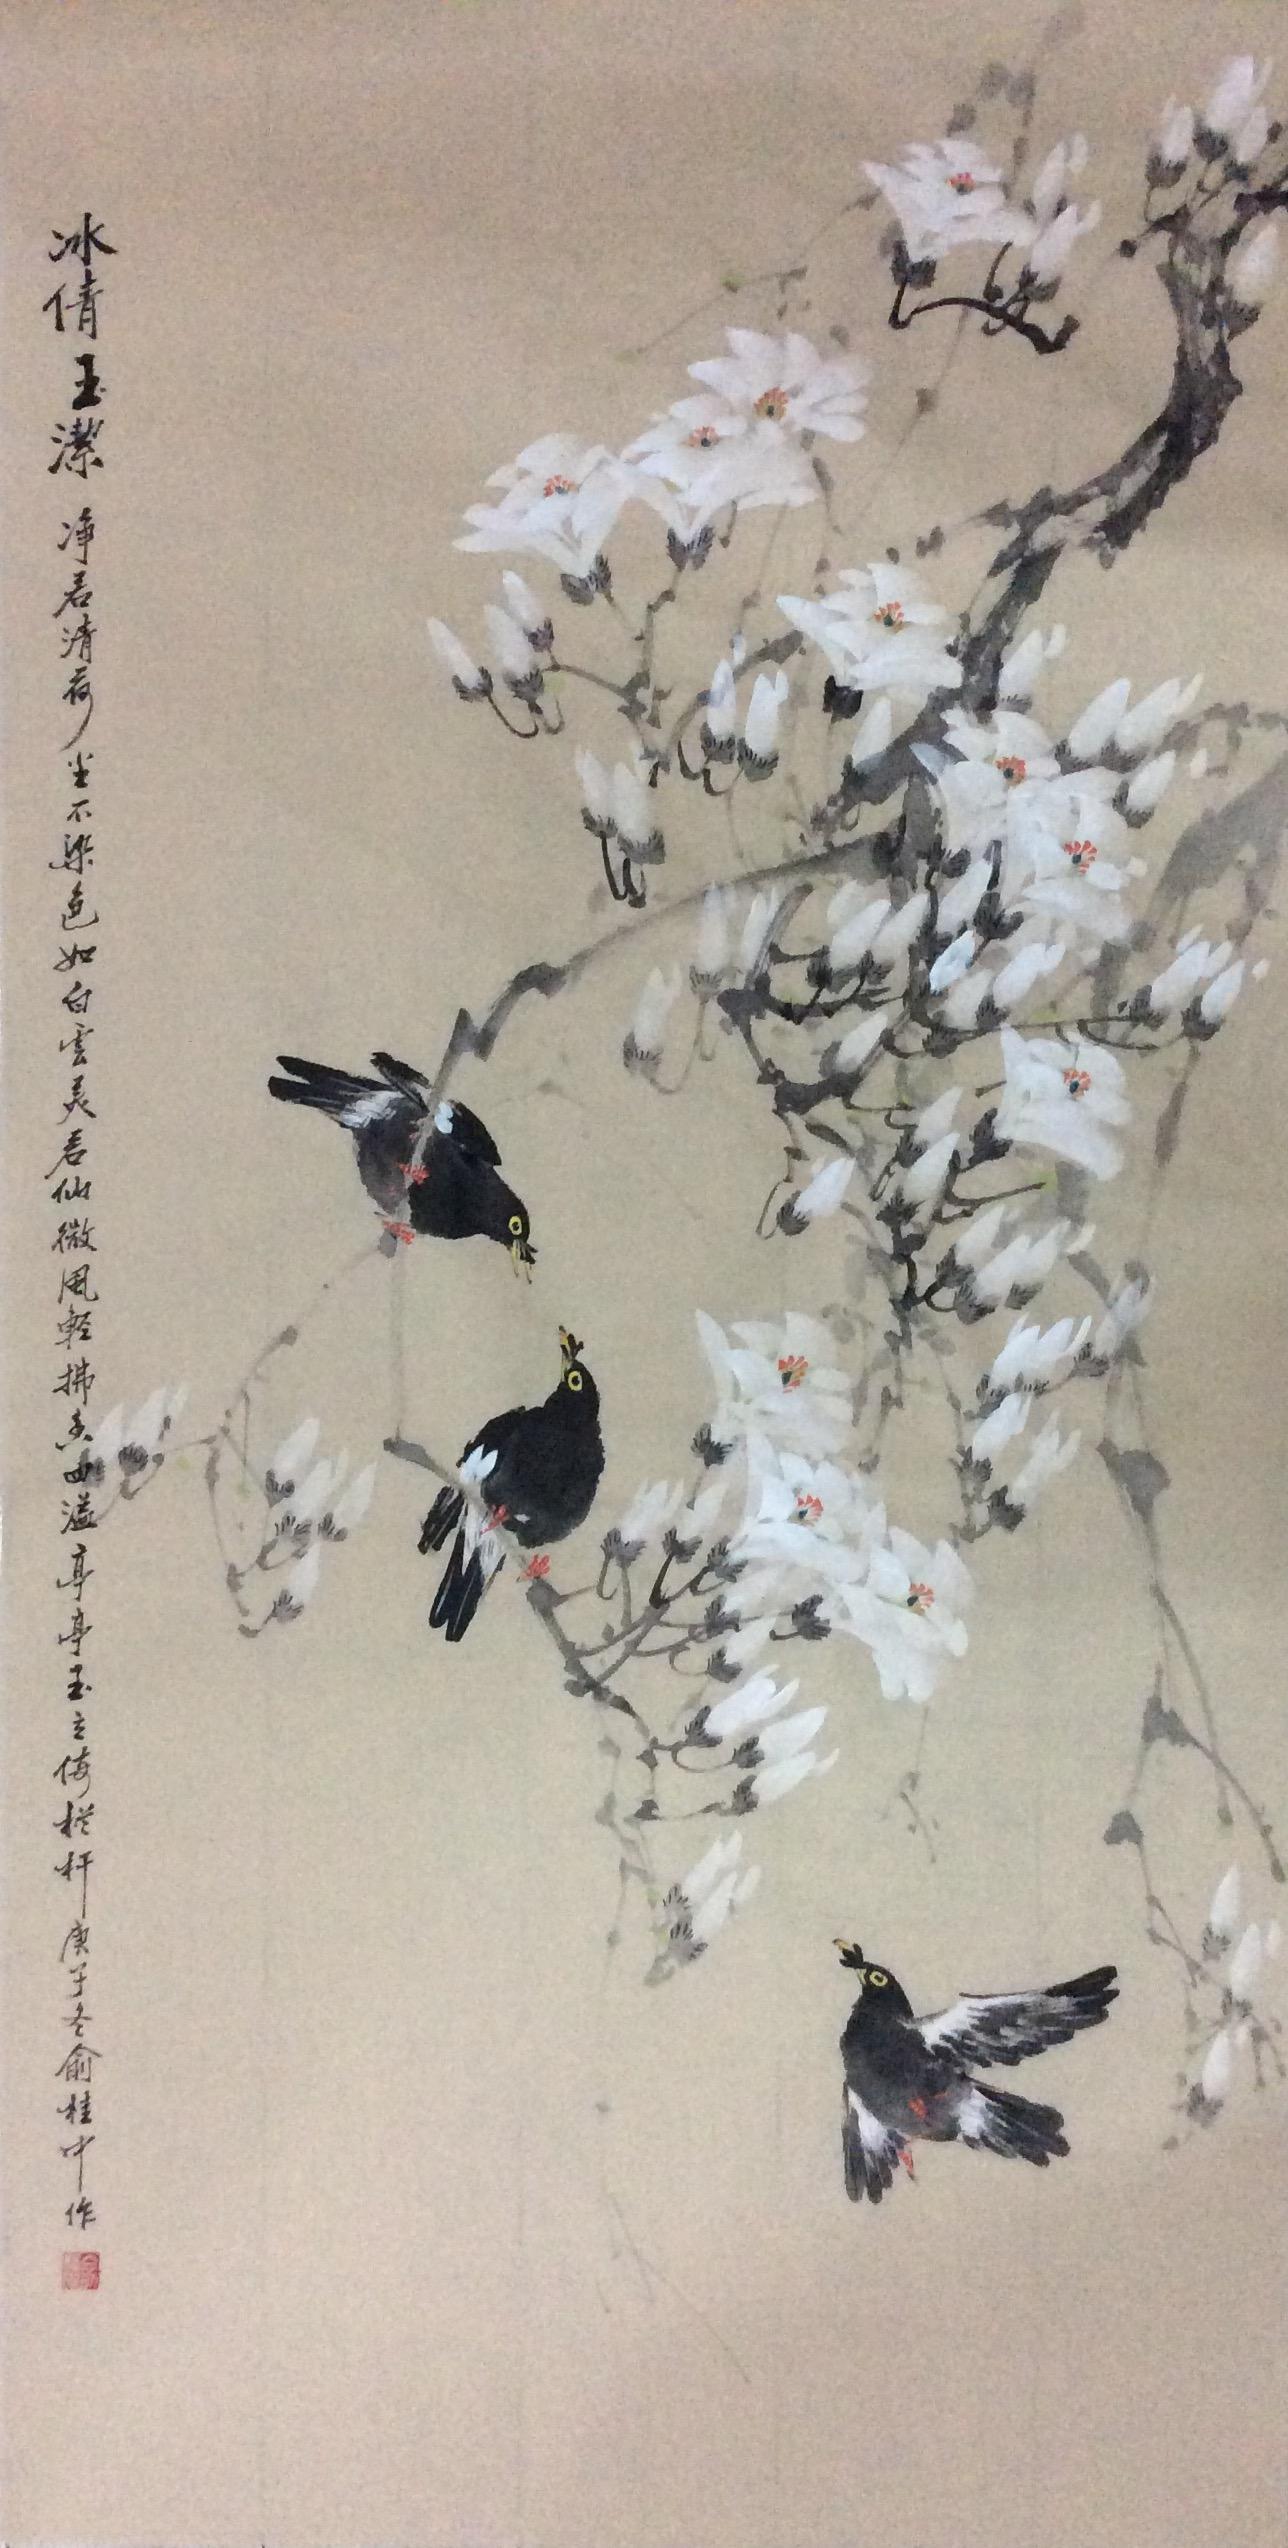 冰倩玉潔 净若清荷尘不染色如白雲美若仙微風輕拂香四溢亭亭玉立倚栏杆庚子冬俞桂中作